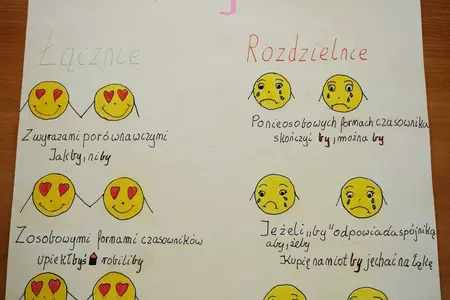 Łącznie
Z wyrazami porównawczymi
Jakby, niby
Z osobowymi formami czasowników
upiekłbyś robiliby
Rozdzielnie
Po nieosobowych formach czasownika
skończyć by, można by
Jeżeli „by" odpowiada spójniką
aby, żeby
Kupię namiot by jechać na Łąkę